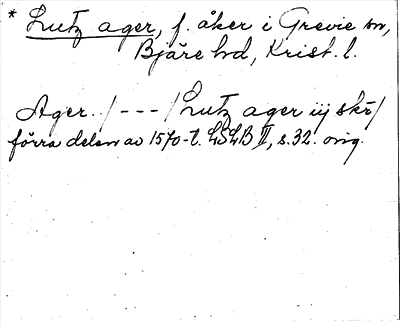 * Lutz ager, f. åker i Grevie sn,
Bjäre hd, Krist. l.
Ager../---/Lutz ager iij skr/
förra delen av 1570-t. LSLB II, s.32. orig.